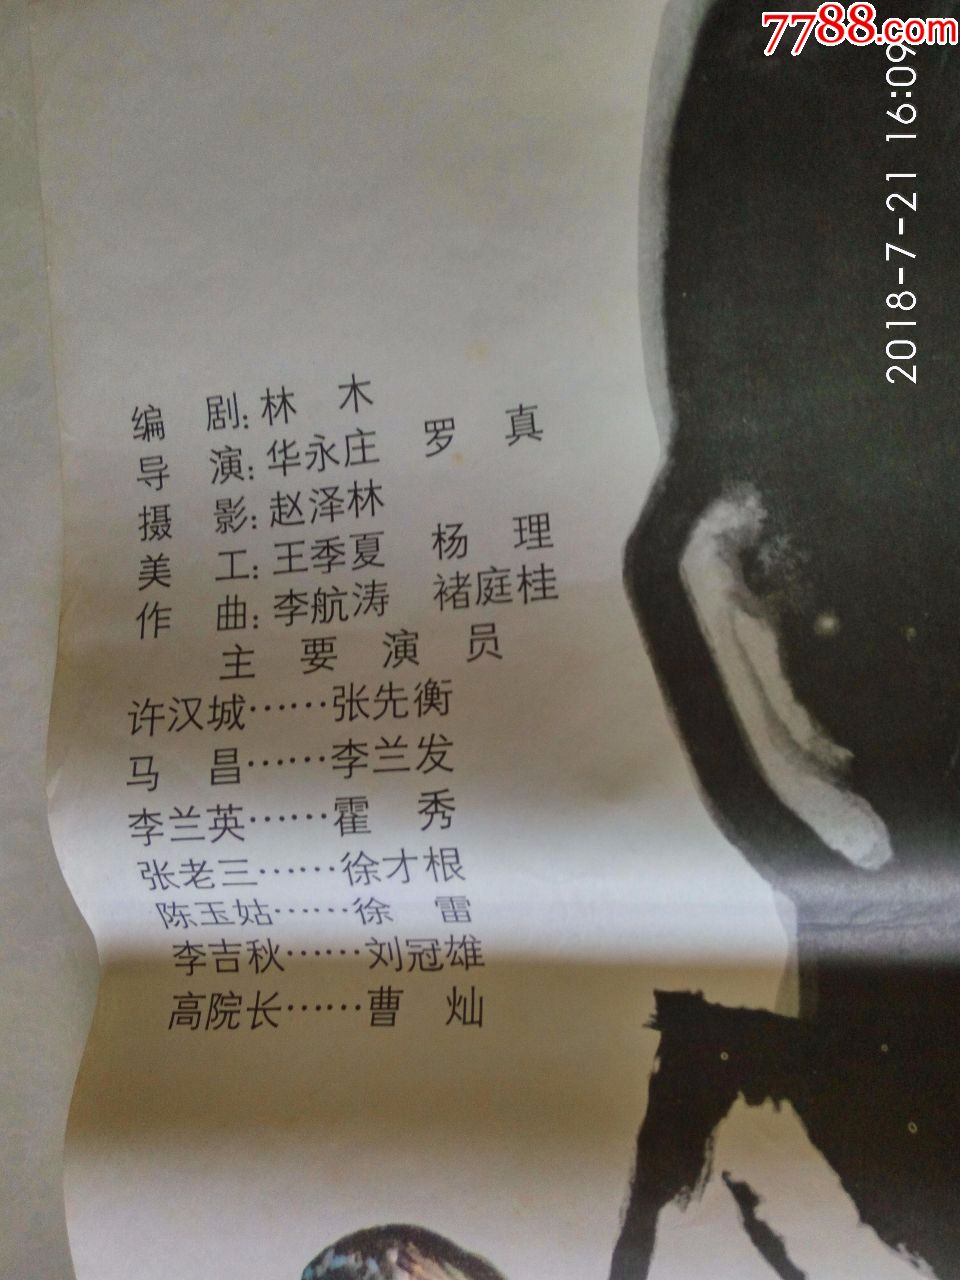 7788.com
2018-7-21 16:09
编 剧:林 木
导 演:华永庄 罗 真
摄 影:赵泽林
美 工:王季夏 杨 理
作 曲:李航涛 褚庭桂
主 要 演 员
许汉城……张先衡
马 昌……李兰发
李兰英……霍 秀
张老三……徐才根
陈玉姑……徐 雷
李吉秋……刘冠雄
高院长……曹 灿